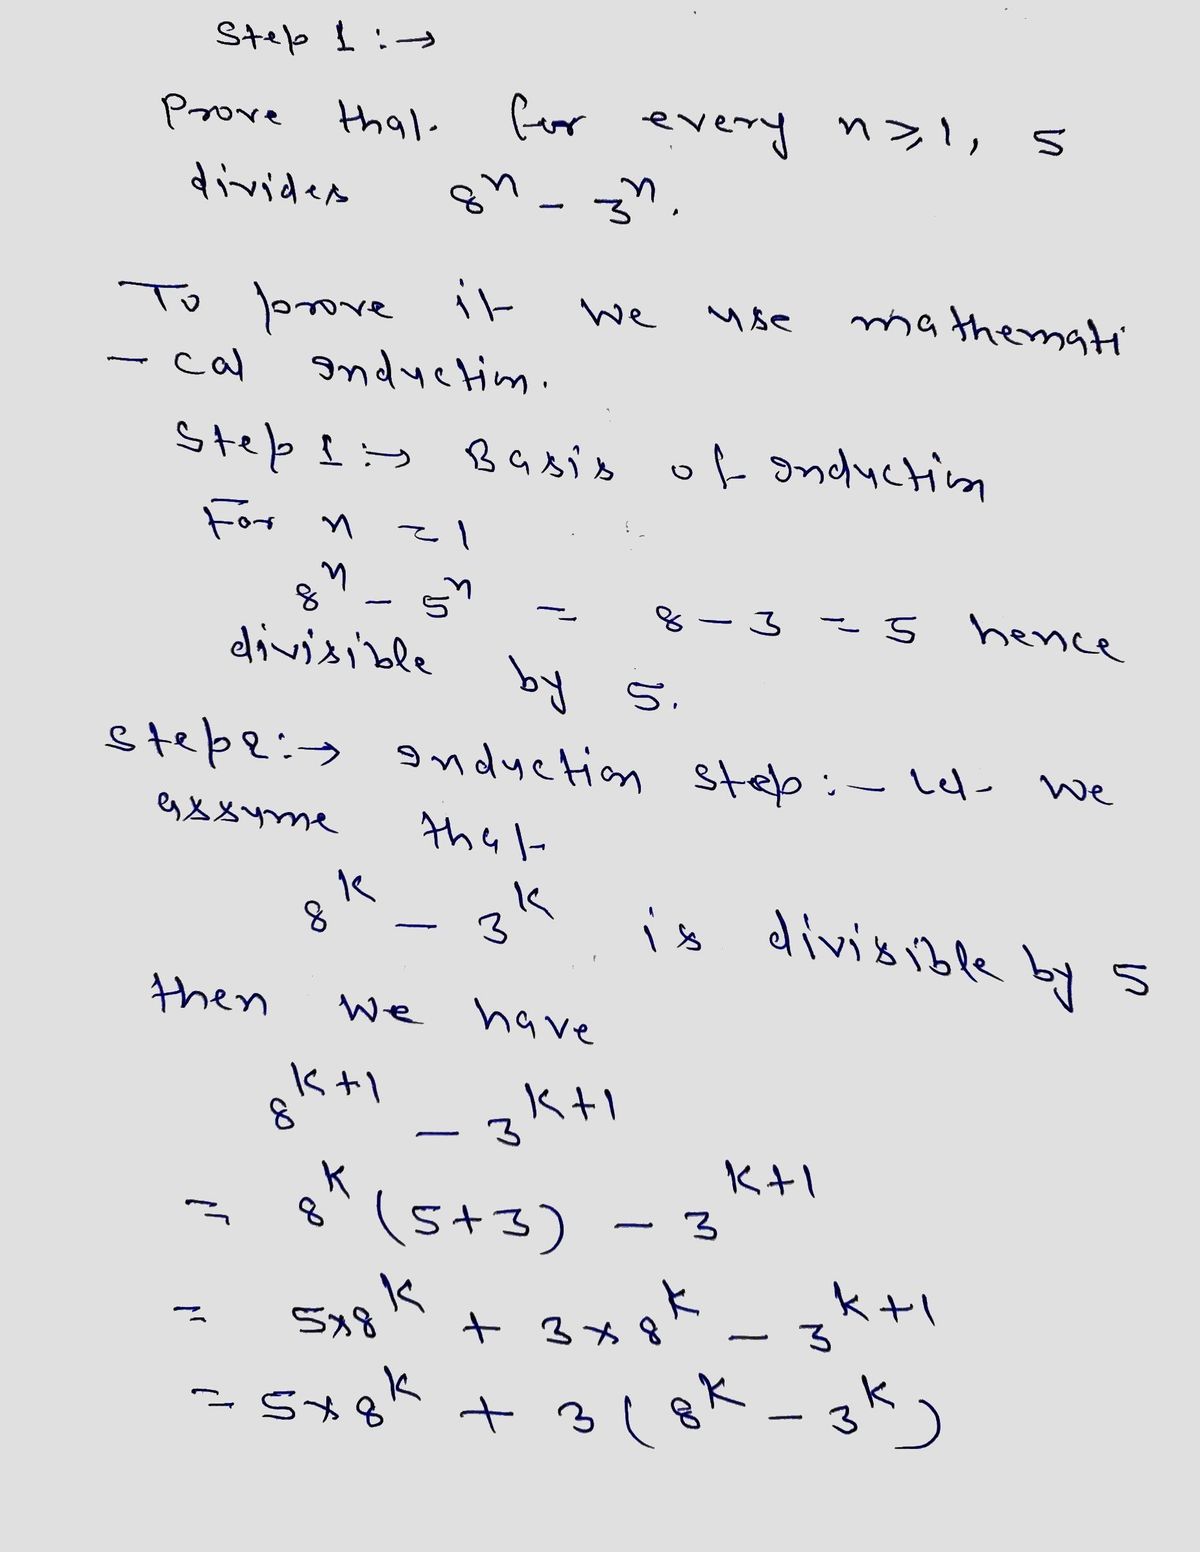 Step 1 :→
Prove that for every n ⩾ 1, 5
divides 8ⁿ - 3ⁿ.
To prove it we use mathemati
- cal Induction.
Step 1 :→ Basis of Induction
For n = 1
8ⁿ - 5ⁿ = 8 - 3 = 5 hence
divisible by 5.
Step 2 :→ Induction step :- Let we
assume that
8ᵏ - 3ᵏ is divisible by 5
then we have
8ᵏ⁺¹ - 3ᵏ⁺¹
= 8ᵏ (5+3) - 3ᵏ⁺¹
= 5×8ᵏ + 3×8ᵏ - 3ᵏ⁺¹
= 5×8ᵏ + 3(8ᵏ - 3ᵏ)